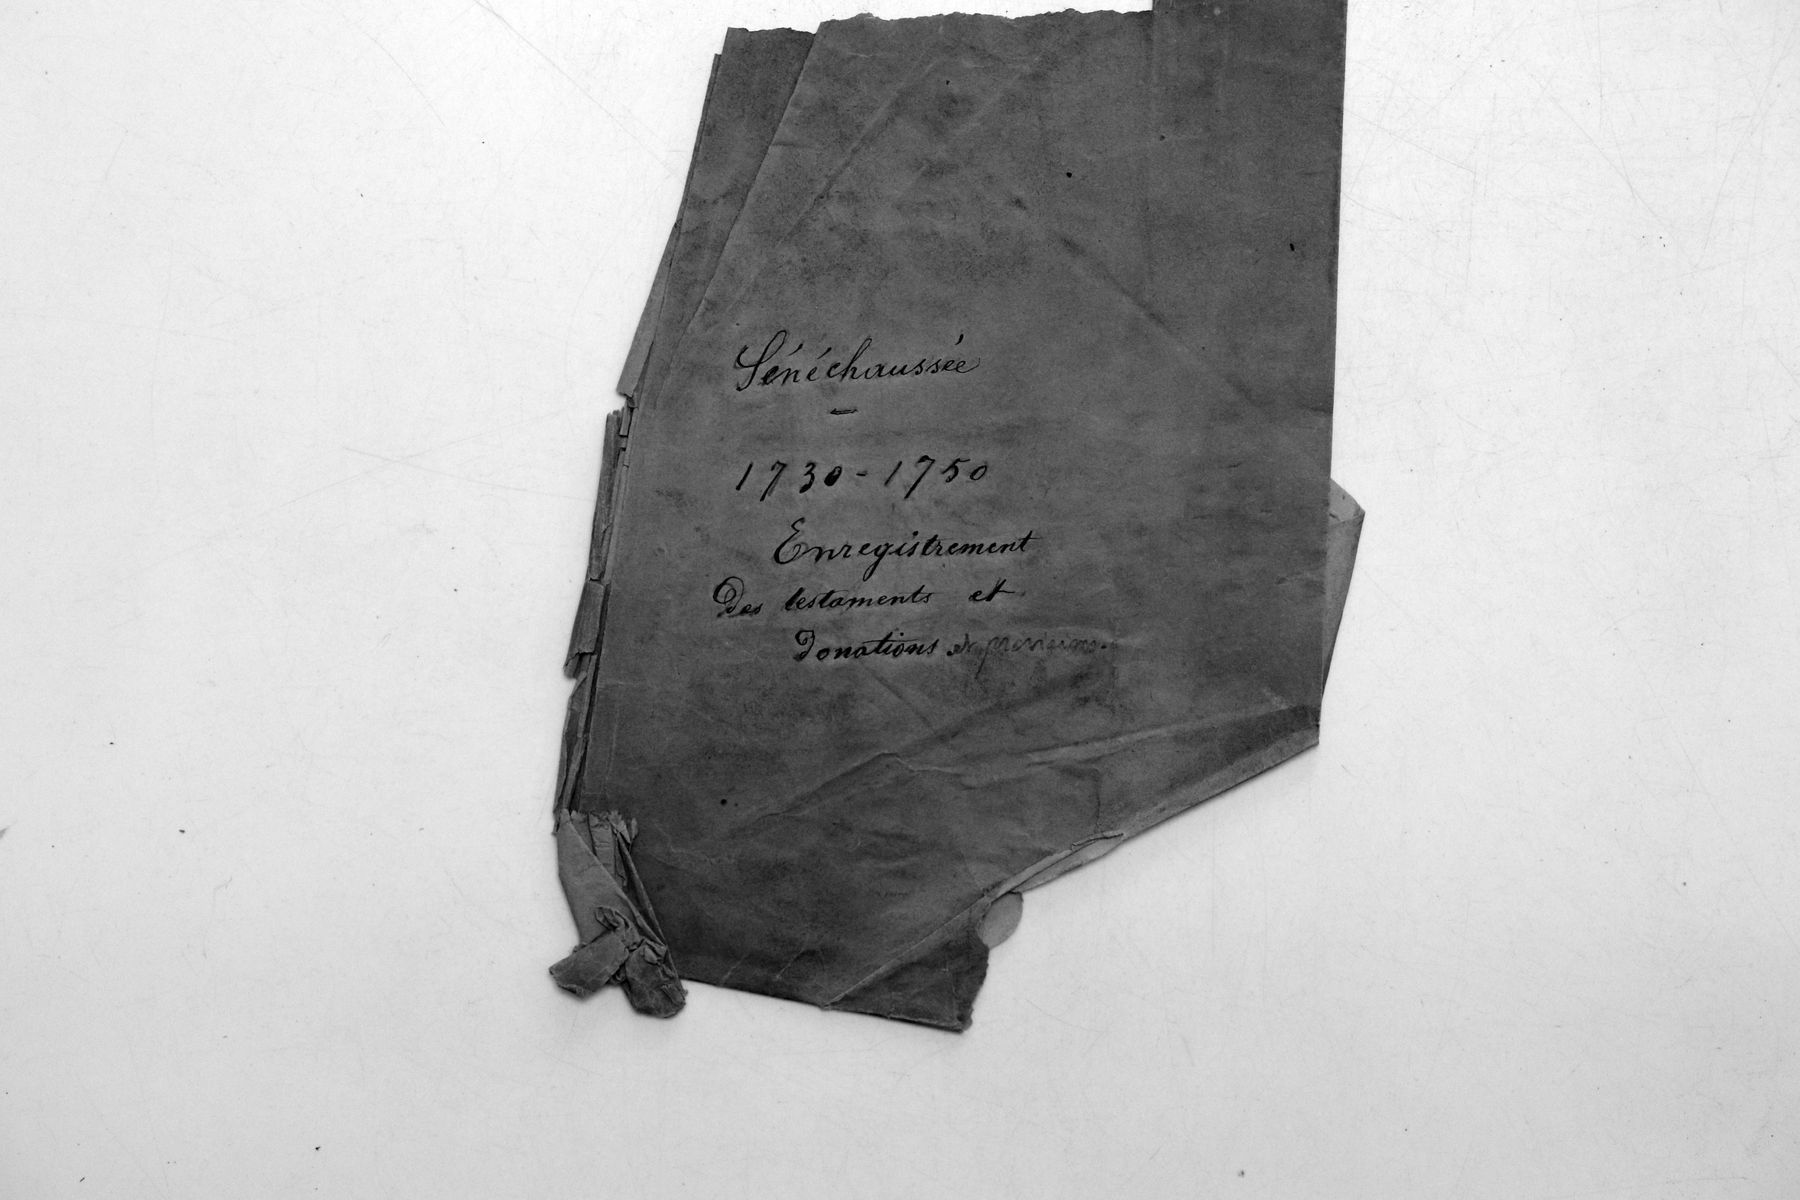 Sénéchaussée
1730-1750
Enregistrement
Des testaments et
Donations et